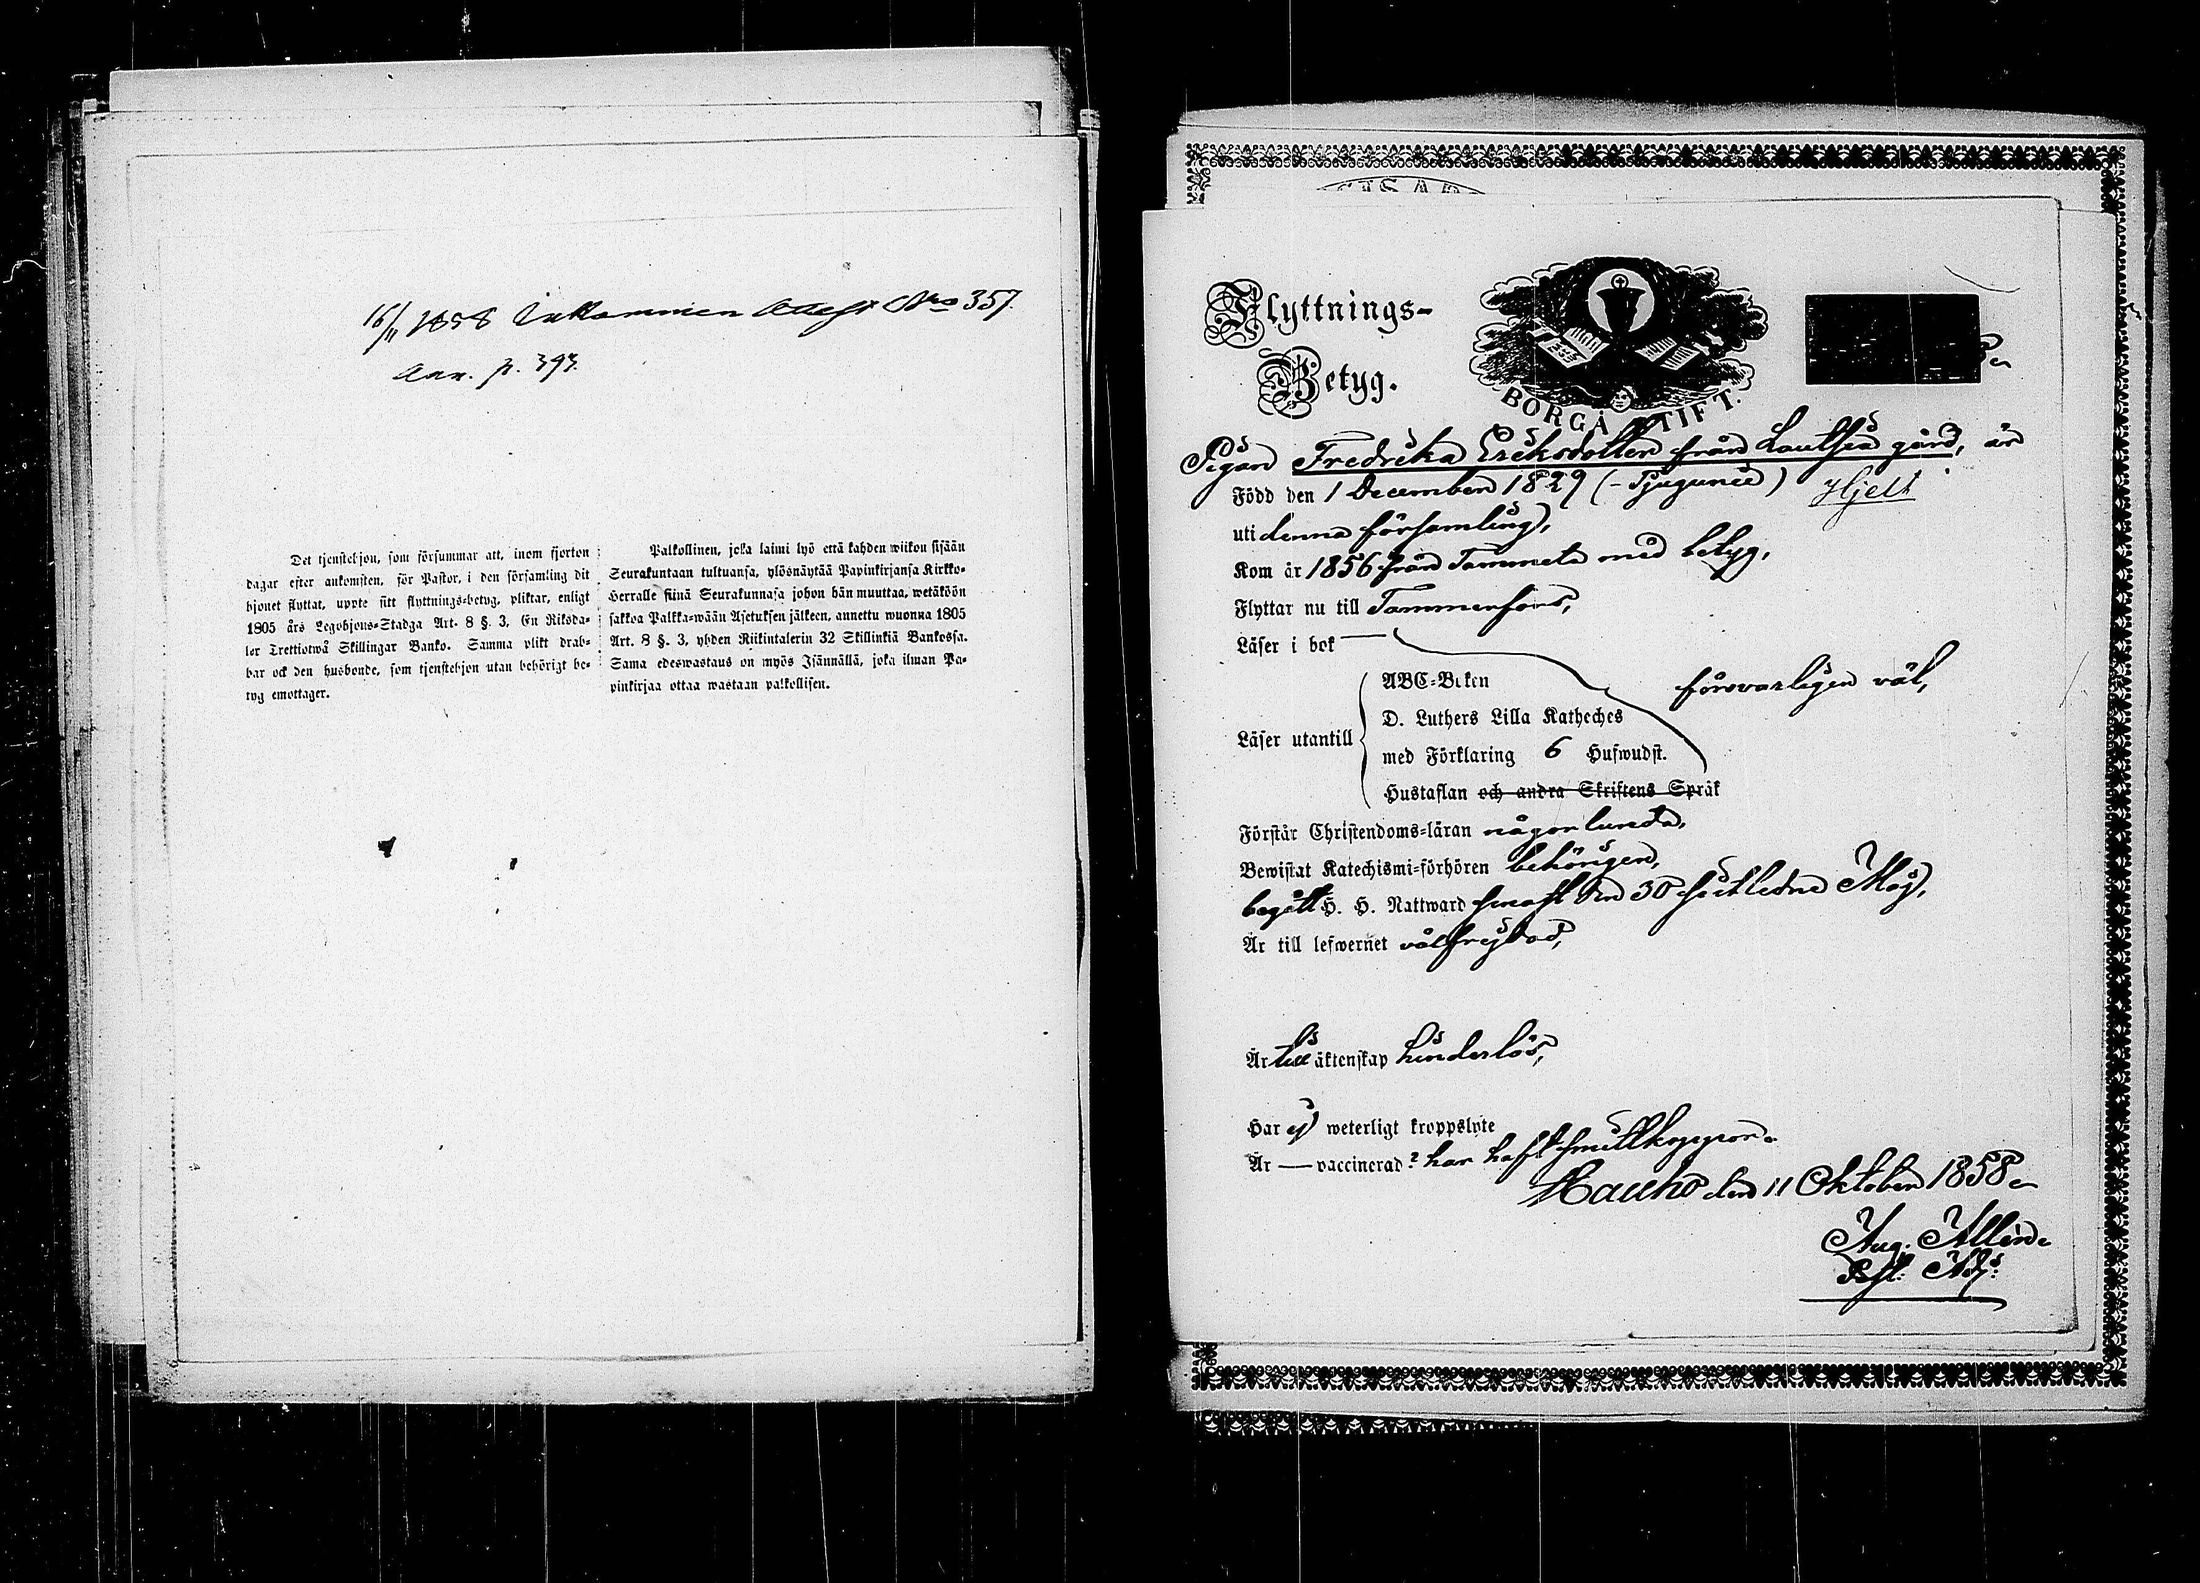 16/11 1858 Inkommen Attest Nro 357.
Ann. p. 393.
Det tjenstehjon, som försummar att, inom fjorton
dagar efter ankomsten, för Pastor, i den församling dit
hjonet flyttat, uppte sitt flyttnings-betyg, pliktar, enligt
1805 års Legohjons-Stadga Art. 8 §. 3, En Riksda-
ler Trettiotwå Skillingar Banko. Samma plikt drab-
bar ock den husbonde, som tjenstehjon utan behörigt be-
tyg emottager.
Palkollinen, joka laimi lyö että kahden wiikon sisään
Seurakuntaan tultuansa, ylösnäytää Papinkirjansa Kirkko-
Herralle siinä Seurakunnasa johon hän muuttaa, wetäköön
sakkoa Palkka-wään Asetuksen jälkeen, annettu wuonna 1805
Art. 8 §. 3, yhden Riikintalerin 32 Skillinkiä Bankossa.
Sama edeswastaus on myös Isännällä, joka ilman Pa-
pinkirjaa ottaa wastaan palkollisen.
Flyttnings-
Betyg.
BORGÅ STIFT.
Pigan Fredrika Eriksdotter från Lautsia gård, är
Född den 1 December 1829 (-Tjugunie) Hjelt
uti denna församling,
Kom år 1856 från Tammela med betyg,
Flyttar nu till Tammerfors,
Läser i bok
försvarligen väl,
ABC-Boken
D. Luthers Lilla Katheches
Läser utantill
med Förklaring 6 Hufwudst.
Hustaflan och andra Skriftens Språk
Förstår Christendoms-läran någorlunda,
Bewistat Katechismi-förhören behörigen,
begått H. H. Nattward senast den 30 sistledne Maj,
Är till lefwernet välfrejdad,
Är till äktenskap hinderlös,
Har ej weterligt kroppslyte
Är — vaccinerad? har haft smittkoppor.
Hauho den 11 Oktober 1858
Aug. Allén
Past. Adj: